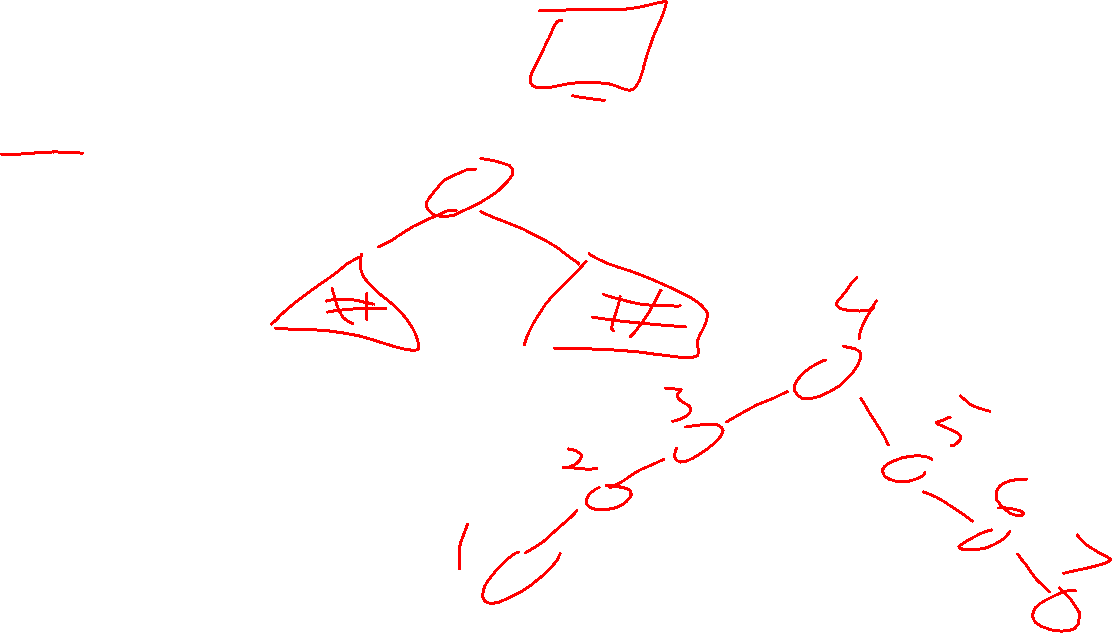 # #
4
3
5
2
6
1
7